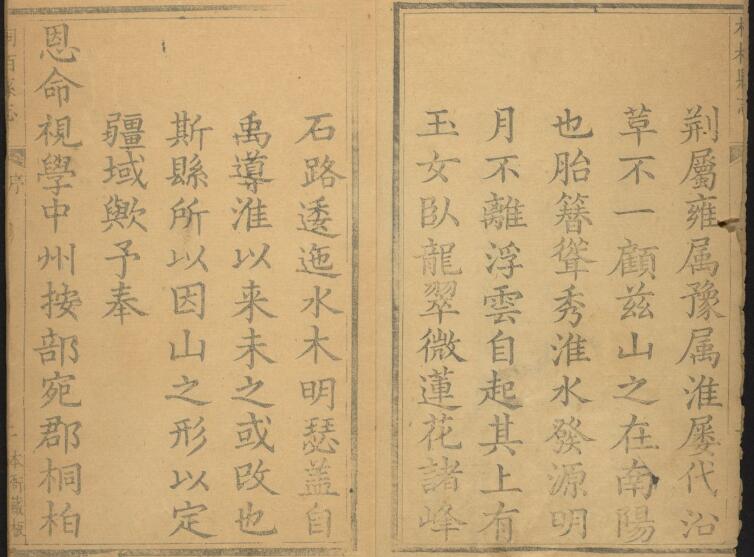 荆屬雍属豫属淮屡代沿
草不一顧兹山之在南陽
也胎簪聳秀淮水發源明
月不離浮雲自起其上有
玉女臥龍翠微蓮花諸峰
石路逶迤水木明瑟蓋自
禹導淮以来未之或改也
斯縣所以因山之形以定
疆域歟予奉
恩命視學中州按部宛郡桐柏
序
本衙藏板